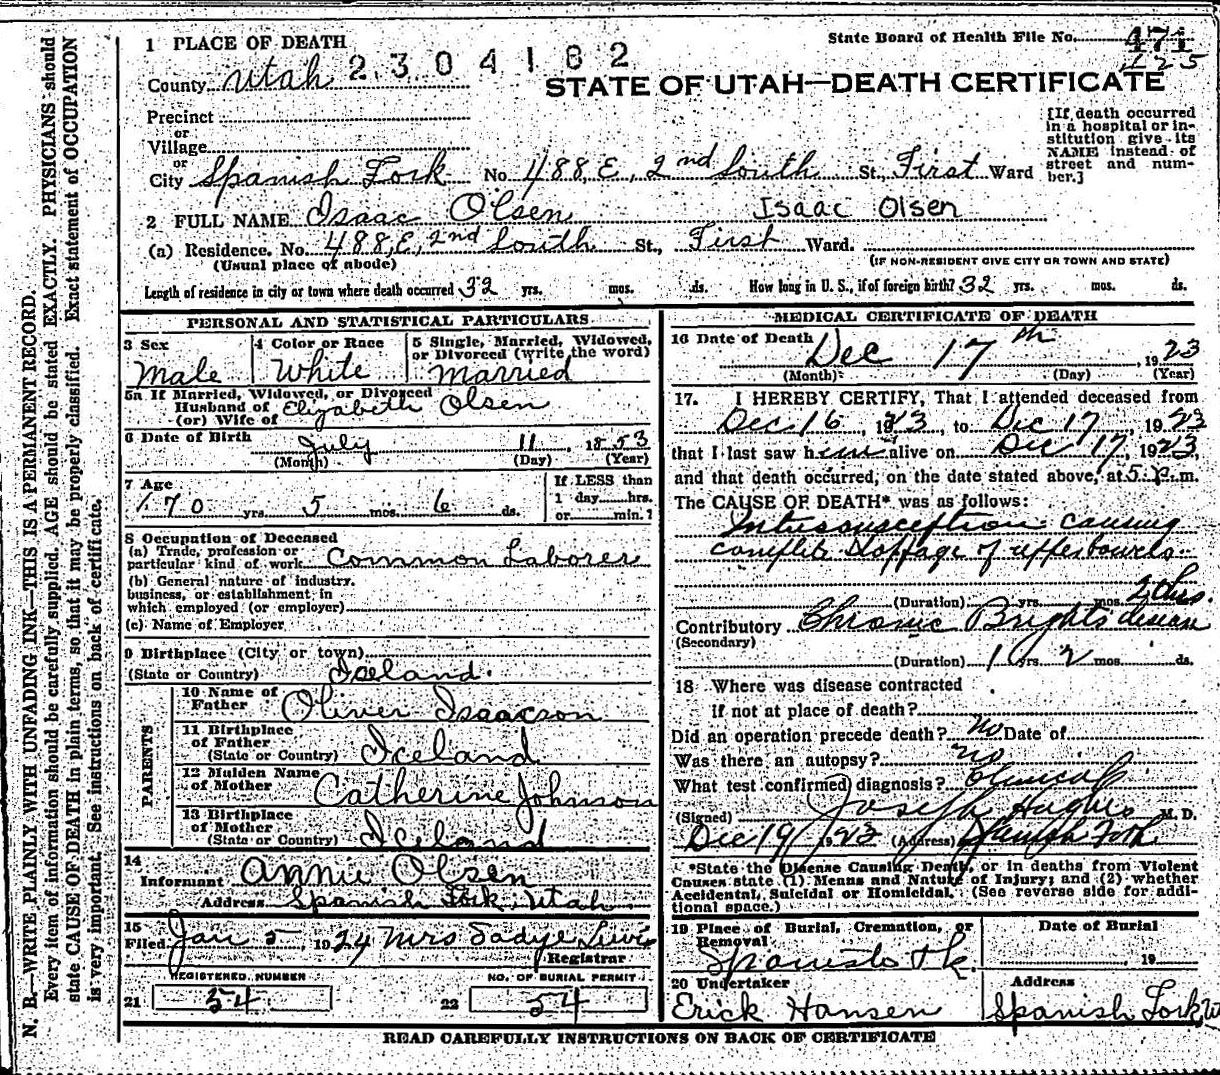 1 PLACE OF DEATH
State Board of Health File No. 471
425
County Utah 2304182
STATE OF UTAH—DEATH CERTIFICATE
Precinct
or
Village
or
City Spanish Fork No. 488, E, 2nd South St., First Ward
[If death occurred
in a hospital or in-
stitution give its
NAME instead of
street and num-
ber.]
2 FULL NAME Isaac Olsen Isaac Olsen
(a) Residence. No. 488, E, 2nd South St., First Ward.
(Usual place of abode) (IF NON-RESIDENT GIVE CITY OR TOWN AND STATE)
Length of residence in city or town where death occurred 32 yrs. mos. ds. How long in U. S., if of foreign birth? 32 yrs. mos. ds.
PERSONAL AND STATISTICAL PARTICULARS
3 Sex
Male
4 Color or Race
White
5 Single, Married, Widowed,
or Divorced (write the word)
Married
5a If Married, Widowed, or Divorced
Husband of
(or) Wife of
Elizabeth Olsen
6 Date of Birth
July 11, 1853
(Month) (Day) (Year)
7 Age
70 yrs. 5 mos. 6 ds.
If LESS than
1 day hrs.
or min.?
8 Occupation of Deceased
(a) Trade, profession or
particular kind of work Common Laborer
(b) General nature of industry,
business, or establishment in
which employed (or employer)
(c) Name of Employer
9 Birthplace (City or town)
(State or Country) Iceland.
PARENTS
10 Name of
Father Oliver Isaacson
11 Birthplace
of Father
(State or Country) Iceland
12 Maiden Name
of Mother Catherine Johnson
13 Birthplace
of Mother
(State or Country) Iceland
14
Informant Annie Olsen
Address Spanish Fork, Utah
15
Filed Jan 5, 1924 Mrs Sadye Lewis
Registrar
REGISTERED NUMBER NO. OF BURIAL PERMIT
21 54 22 54
MEDICAL CERTIFICATE OF DEATH
16 Date of Death Dec 17th, 1923
(Month) (Day) (Year)
17. I HEREBY CERTIFY, That I attended deceased from
Dec 16, 1923, to Dec 17, 1923
that I last saw him alive on Dec 17, 1923,
and that death occurred, on the date stated above, at 5 P. m.
The CAUSE OF DEATH* was as follows:
Intussusception causing
complete stoppage of upper bowels
(Duration) yrs. mos. 20 hrs.
Contributory Chronic Brights disease
(Secondary)
(Duration) 1 yrs. 2 mos. ds.
18 Where was disease contracted
if not at place of death?
Did an operation precede death? No Date of
Was there an autopsy? no
What test confirmed diagnosis? Clinical
(Signed) Joseph Hughes M. D.
Dec 19, 1923 (Address) Spanish Fork
*State the Disease Causing Death, or in deaths from Violent
Causes state (1) Means and Nature of Injury; and (2) whether
Accidental, Suicidal or Homicidal. (See reverse side for addi-
tional space.)
19 Place of Burial, Cremation, or
Removal
Spanish Fk.
Date of Burial
, 19
20 Undertaker
Erick Hansen
Address
Spanish Fork, U
READ CAREFULLY INSTRUCTIONS ON BACK OF CERTIFICATE
N. B.—WRITE PLAINLY WITH UNFADING INK—THIS IS A PERMANENT RECORD.
Every item of information should be carefully supplied. AGE should be stated EXACTLY. PHYSICIANS should
state CAUSE OF DEATH in plain terms, so that it may be properly classified. Exact statement of OCCUPATION
is very important. See instructions on back of certificate.